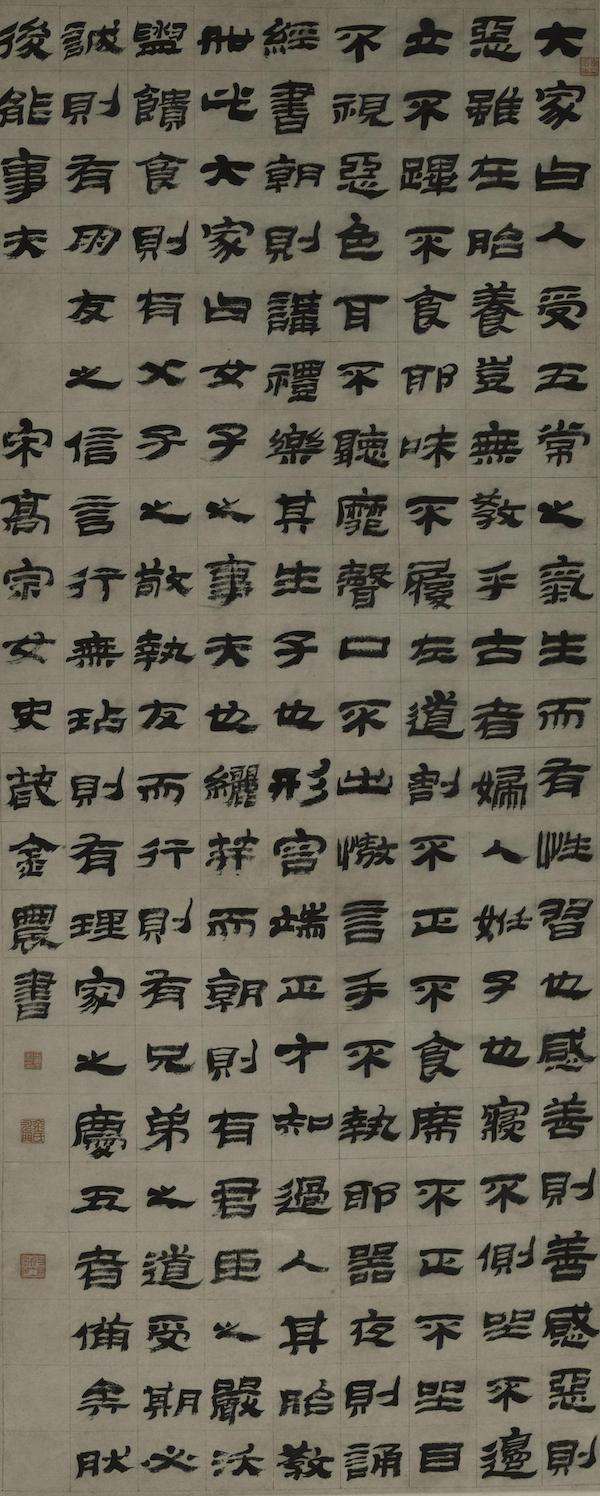 大家曰人受五常之氣生而有性習也感善則善感惡則
惡雖在胎養豈無教乎古者婦人妊子也寢不側坐不邊
立不蹕不食耶味不履左道割不正不食席不正不坐目
不視惡色耳不聽靡聲口不出慠言手不執耶器夜則誦
經書朝則講禮樂其生子也形容端正才知過人其胎教
如此大家曰女子之事夫也纚笄而朝則有君臣之嚴沃
盥饋食則有父子之敬執友而行則有兄弟之道受期必
誠則有朋友之信言行無玷則有理家之慶五者備矣然
後能事夫 宋高宗女史葴金農書